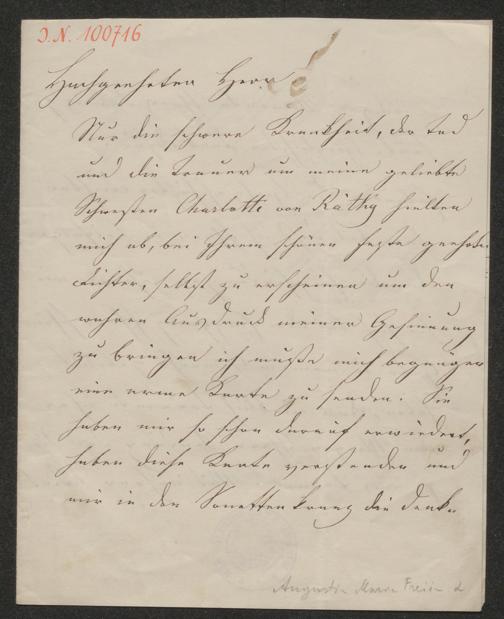 J.N. 100716
Hochgeehrter Herr
Nur die schwere Krankheit, der Tod
und die Trauer um meine geliebte
Schwester Charlotte von Ráthy hielten
mich ab, bei Ihrem schönen Feste geehrter
Dichter, selbst zu erscheinen um den
wahren Ausdruck meiner Gesinnung
zu bringen ich mußte mich begnügen
eine arme Karte zu senden. Sie
haben mir so schön darauf erwiedert,
haben diese Karte verstanden und
mir in den Sonettenkranz die Denk-
Auguste Maria Freiin